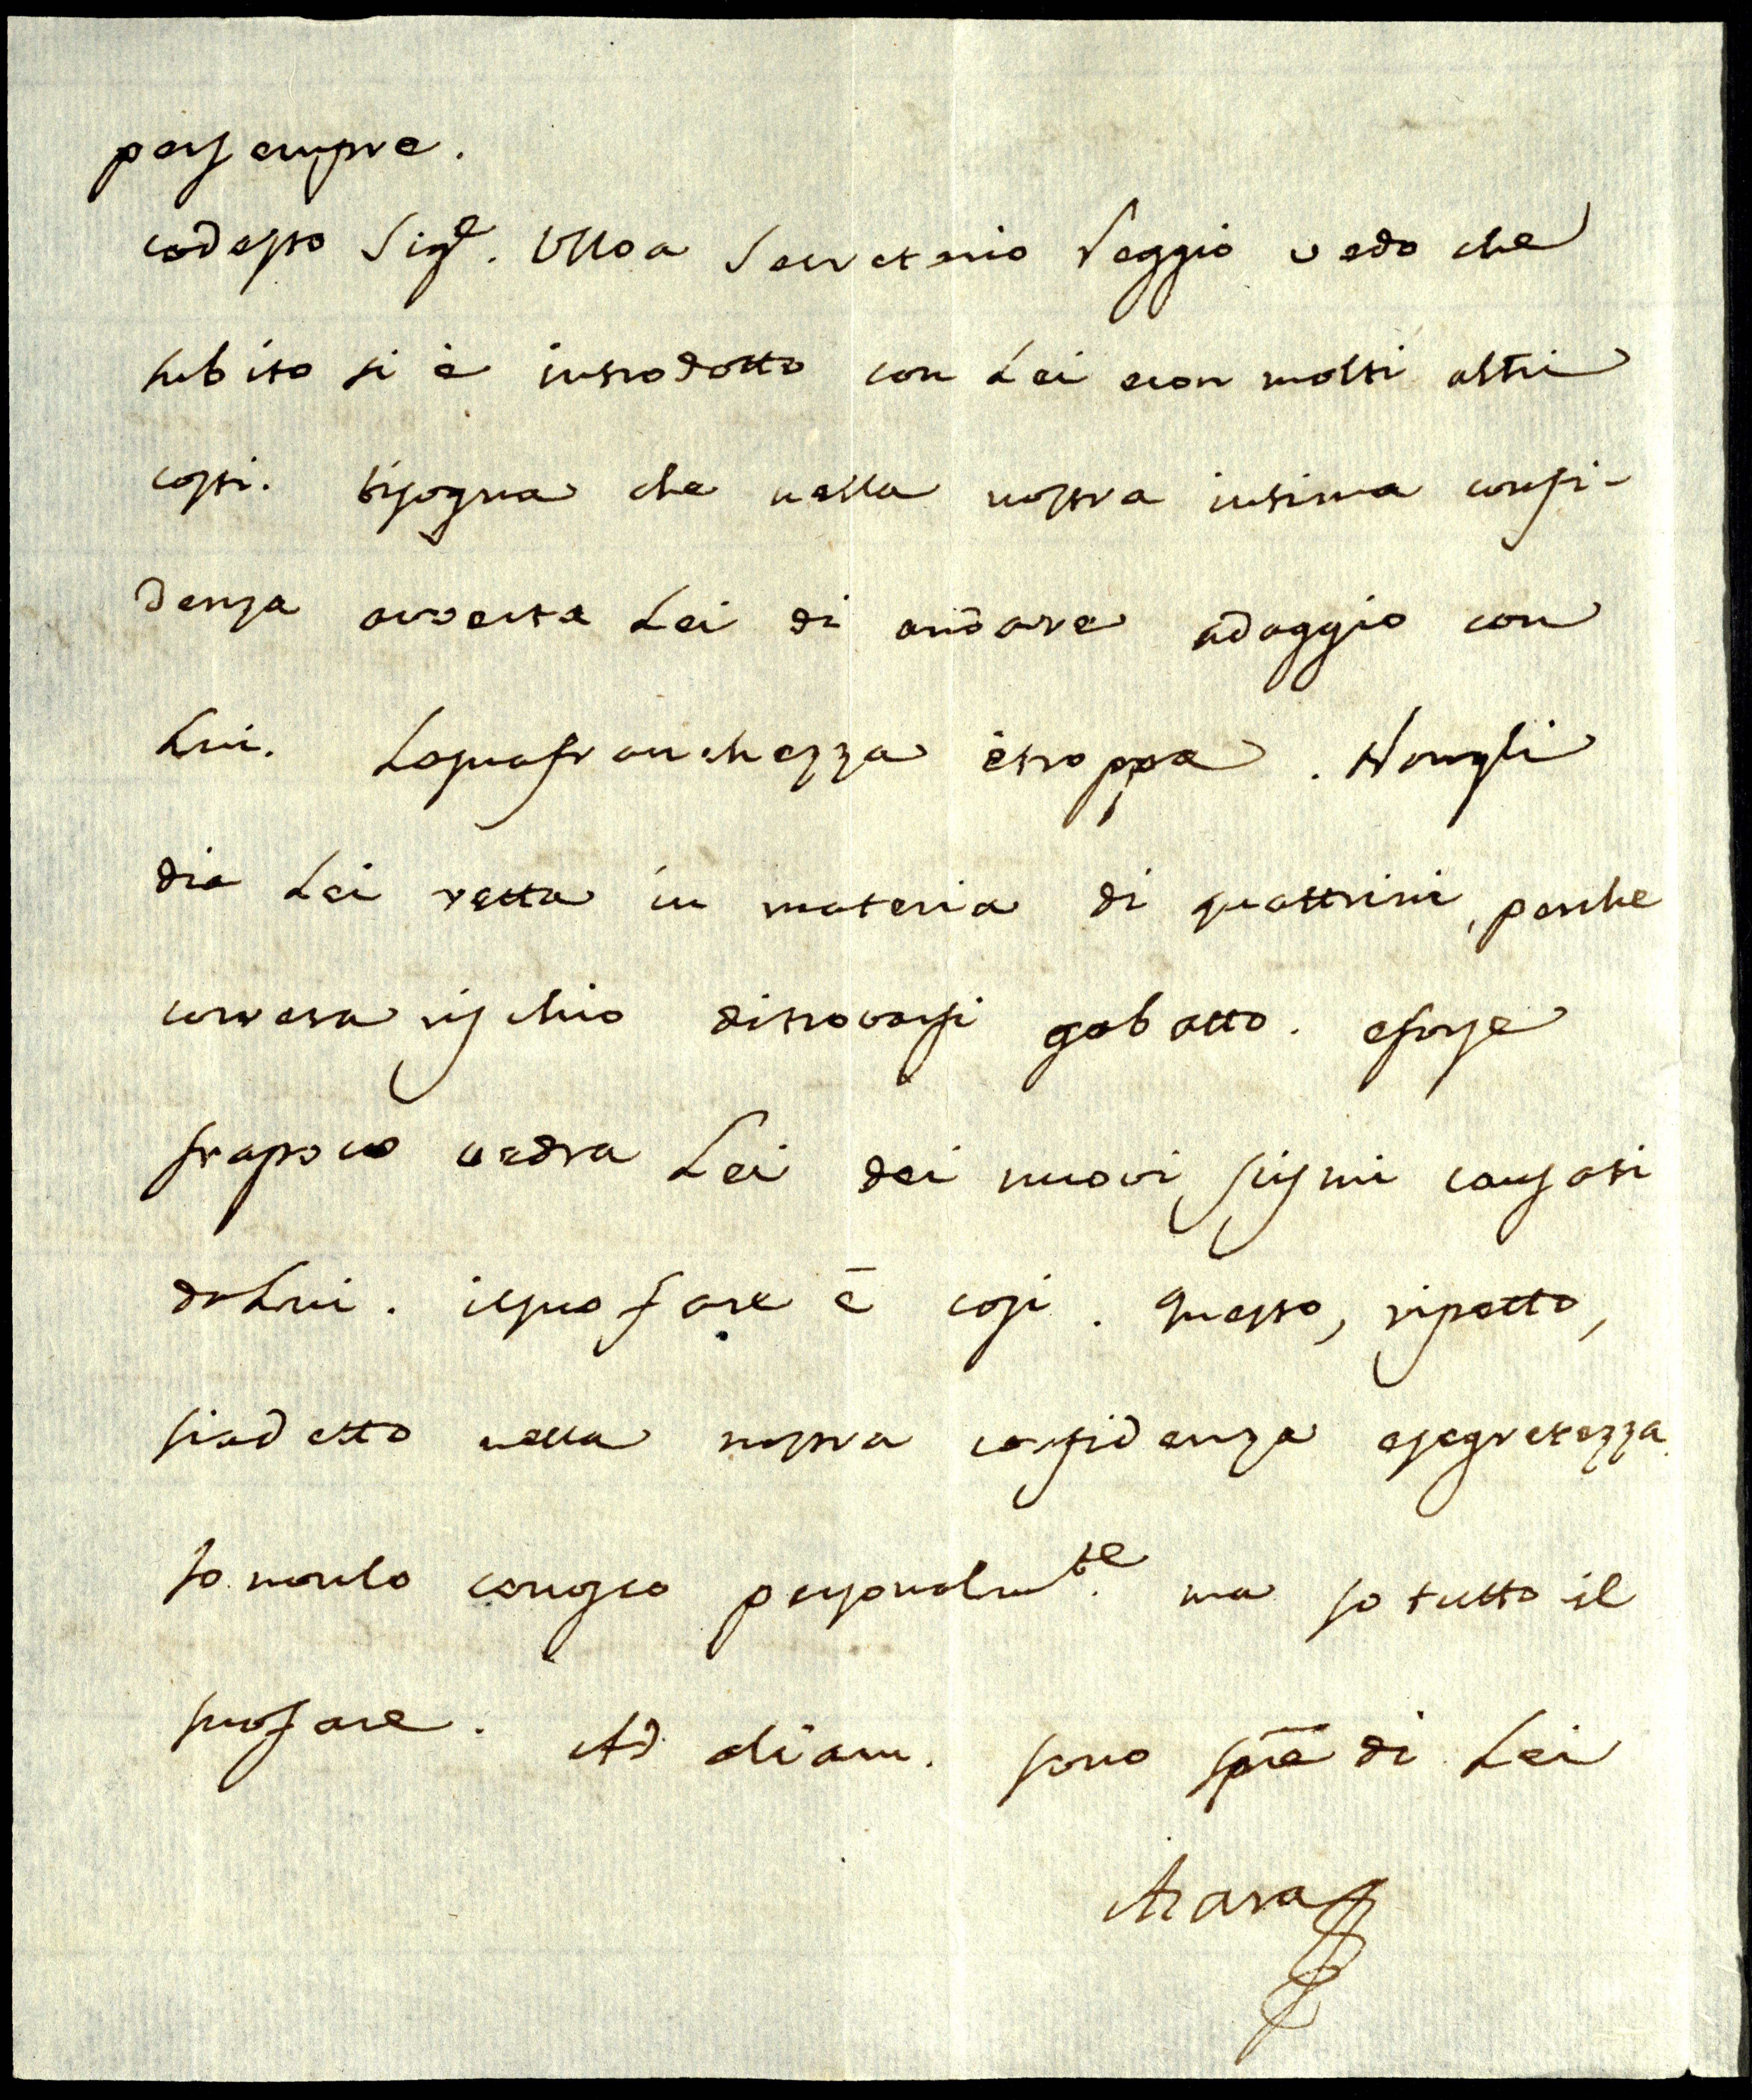 persempre.
codesto Sig.e Ulloa Secretario Reggio vedo che
subito si è introdotto con Lei econ molti altri
costi. bisogna che nella nostra intima confi-
denza avverta Lei di andare adaggio con
Lui. Lasuafranchezza ètroppa. Nongli
dia Lei retta in materia di quattrini, perche
correra rischio ditrovarsi gabatto. eforse
frapoco vedra Lei dei nuovi scismi causati
daLui. ilsuo fare è cosi. questo, ripetto,
siadetto nella nostra confidenza esegretezza.
Io nonlo conosco personalm.te ma so tutto il
suofare. Ad diam. sono sp̄re di Lei
Azara